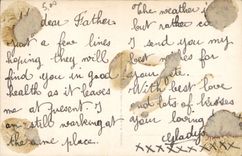 dear Father
Just a few lines
hoping they will
find you in good
health as it leaves
me at present. I
am still working at
the same place.
The weather is
but rather
I send you my
best wishes for
With best love
and lots of kisses
your loving
Gladys
xxxxxxxx